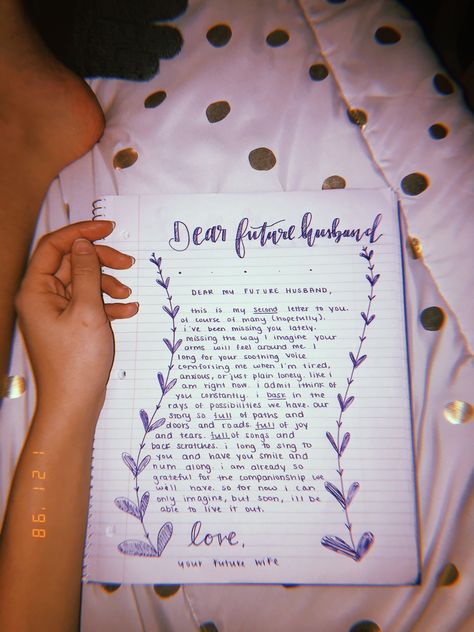 Dear future husband
DEAR MY FUTURE HUSBAND,
this is my second letter to you.
of course of many (hopefully).
i've been missing you lately.
missing the way i imagine your
arms will feel around me. i
long for your soothing voice
comforting me when i'm tired,
anxious, or just plain lonely. like i
am right now. i admit i think of
you constantly. i bask in the
rays of possibilities we have. our
story so full of paths and
doors and roads. full of joy
and tears. full of songs and
back scratches. i long to sing to
you and have you smile and
hum along. i am already so
grateful for the companionship we
will have. so for now i can
only imagine, but soon, i'll be
able to live it out.
love,
your future wife
1 21 '98